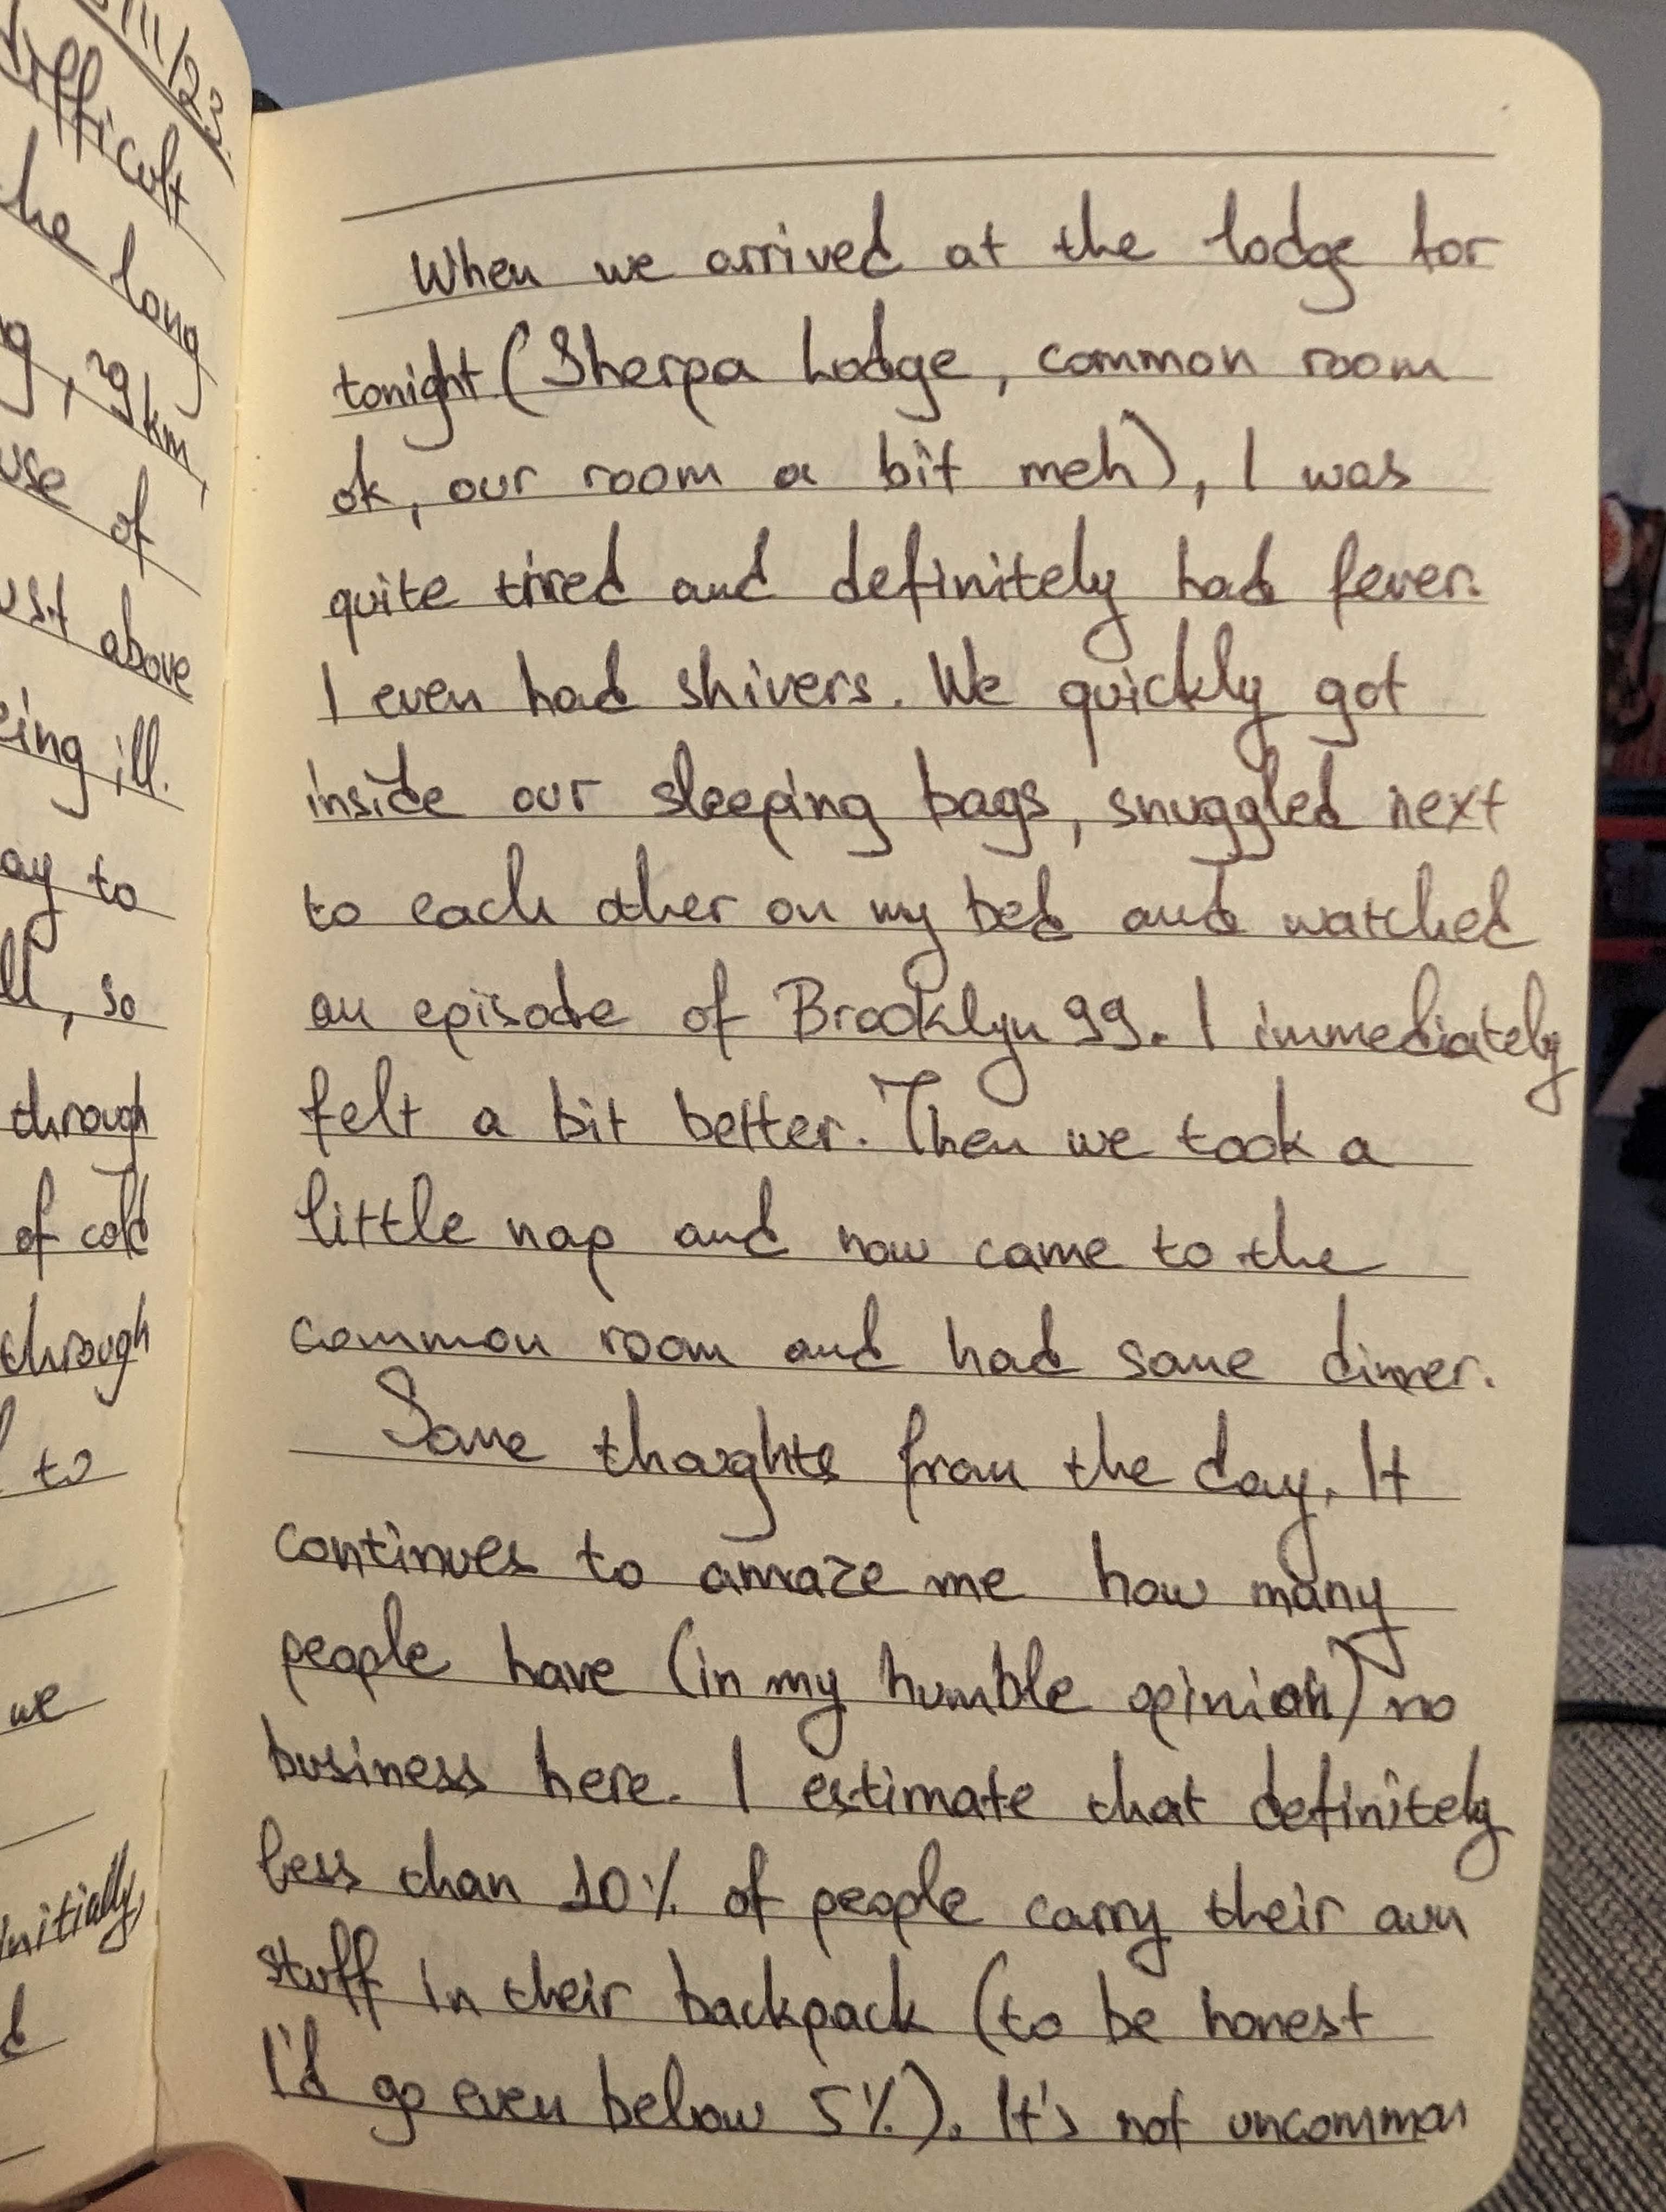 11/23.
difficult
the long
, 29km,
use of
ust above
eing ill.
ay to
ll, so
through
of cold
through
to
we
initially,
When we arrived at the lodge for
tonight (Sherpa Lodge, common room
ok, our room a bit meh), I was
quite tired and definitely had fever.
I even had shivers. We quickly got
inside our sleeping bags, snuggled next
to each other on my bed and watched
an episode of Brooklyn 99. I immediately
felt a bit better. Then we took a
little nap and now came to the
common room and had some dinner.
Some thoughts from the day. It
continues to amaze me how many
people have (in my humble opinion) no
business here. I estimate that definitely
less than 10% of people carry their own
stuff in their backpack (to be honest
I'd go even below 5%). It's not uncommon